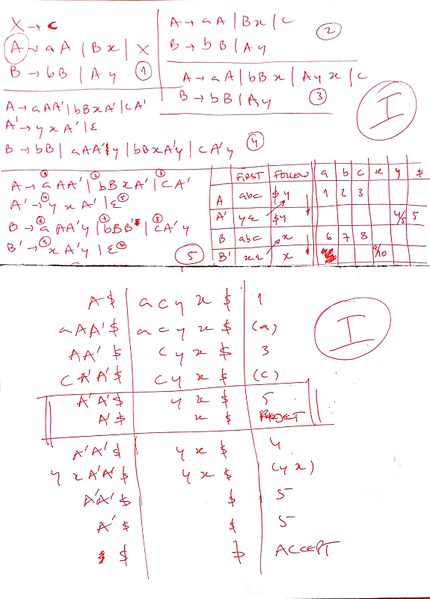 X → c
A → aA | Bx | X
B → bB | Ay ①
A → aA | Bx | c
B → bB | Ay ②
A → aA | bBx | Ayx | c
B → bB | Ay ③
A → aAA' | bBxA' | cA'
A' → yxA' | ε
B → bB | aAA'y | bBxA'y | cA'y ④
I
A → ① aAA' | ② bBxA' | ③ cA'
A' → ④ yxA' | ε ⑤
B → ⑥ aAA'y | ⑦ bBB' | ⑧ cA'y
B' → ⑨ xA'y | ε ⑩
⑤
FIRST FOLLOW a b c x y $
A abc $y 1 2 3
A' yε $y 4/5 5
B abc x 6 7 8
B' xε x 9/10
I
A$ acyx$ 1
aAA'$ acyx$ (a)
AA'$ cyx$ 3
cA'A'$ cyx$ (c)
A'A'$ yx$ 5
A'$ x$ REJECT
A'A'$ yx$ 4
yxA'A'$ yx$ (yx)
A'A'$ $ 5
A'$ $ 5
$ $ ACCEPT